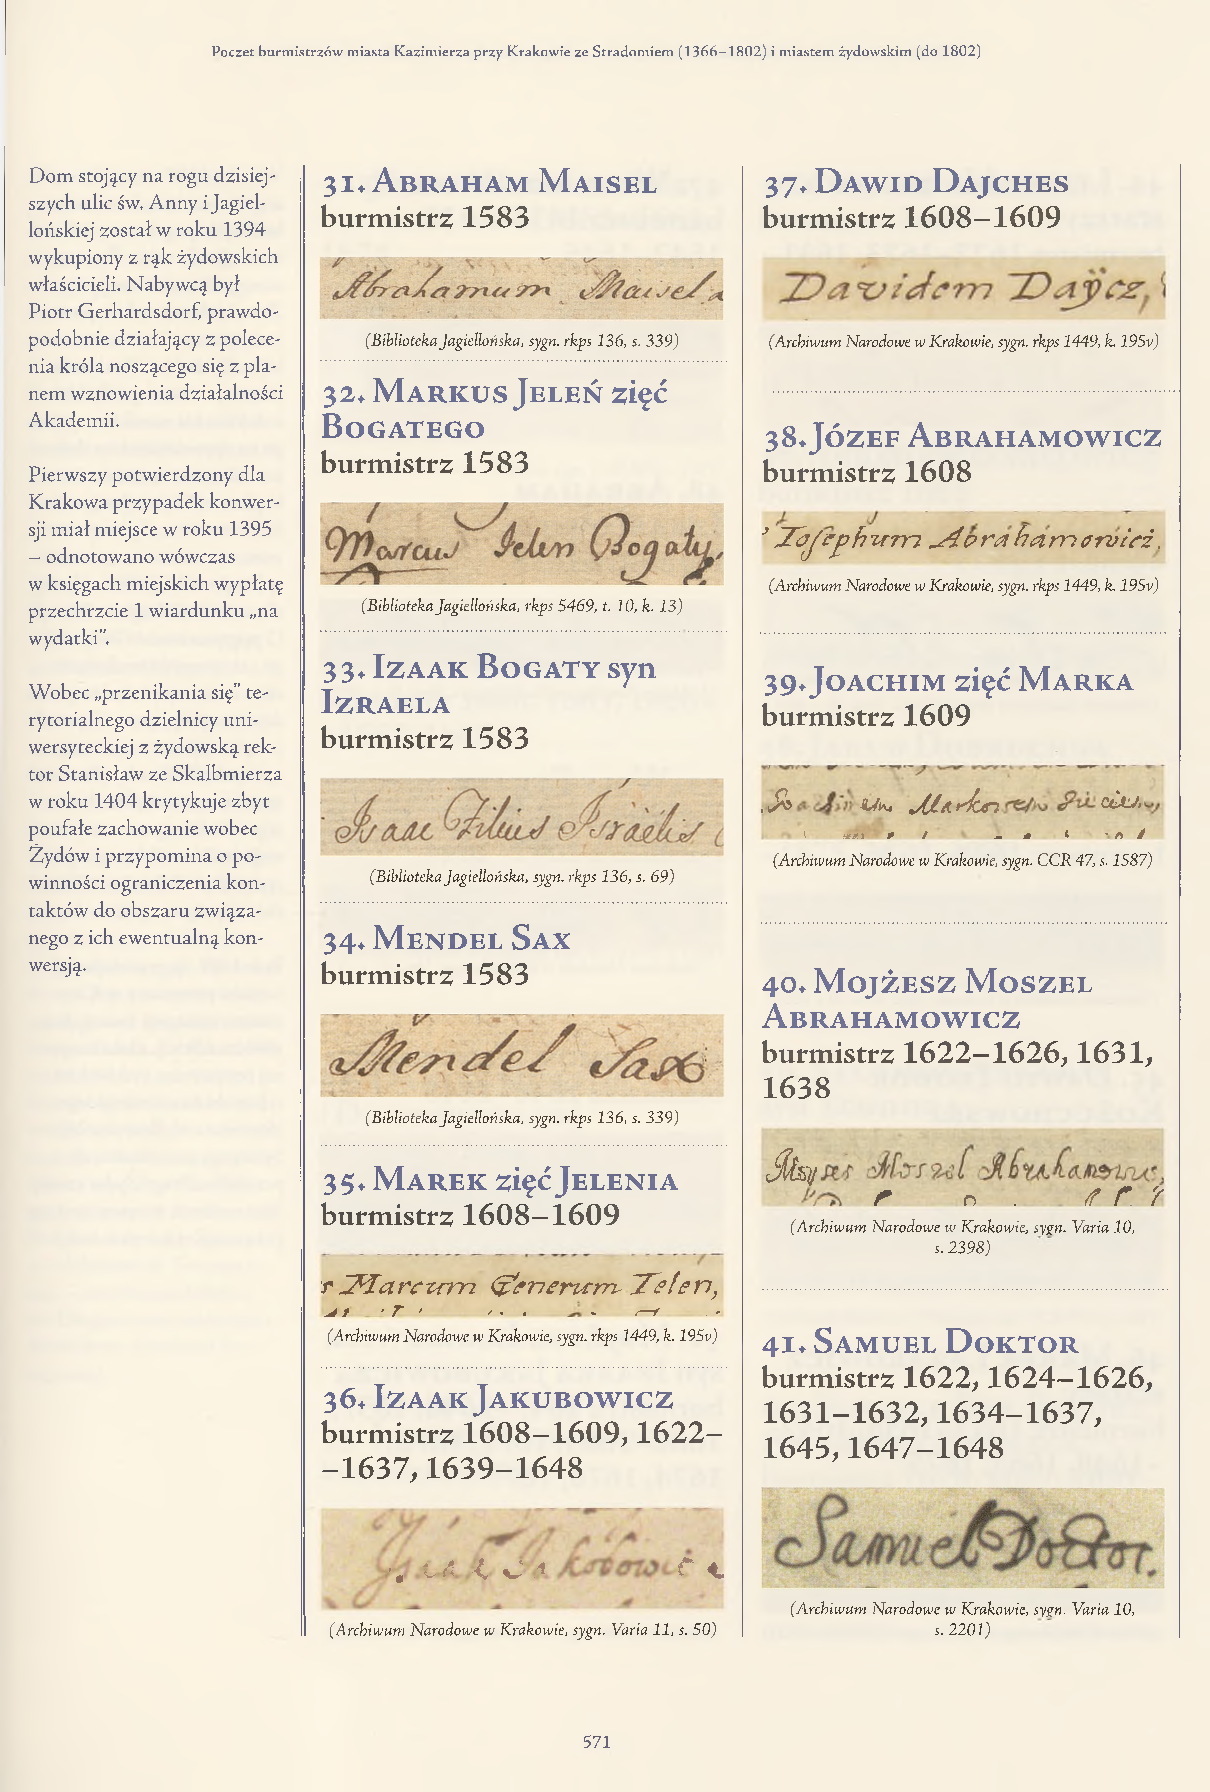 Poczet burmistrzów miasta Kazimierza przy Krakowie ze Stradomiem (1366–1802) i miastem żydowskim (do 1802)
Dom stojący na rogu dzisiej-
szych ulic św. Anny i Jagiel-
lońskiej został w roku 1394
wykupiony z rąk żydowskich
właścicieli. Nabywcą był
Piotr Gerhardsdorf, prawdo-
podobnie działający z polece-
nia króla noszącego się z pla-
nem wznowienia działalności
Akademii.
Pierwszy potwierdzony dla
Krakowa przypadek konwer-
sji miał miejsce w roku 1395
– odnotowano wówczas
w księgach miejskich wypłatę
przechrzcie 1 wiardunku „na
wydatki".
Wobec „przenikania się" te-
rytorialnego dzielnicy uni-
wersyteckiej z żydowską rek-
tor Stanisław ze Skalbmierza
w roku 1404 krytykuje zbyt
poufałe zachowanie wobec
Żydów i przypomina o po-
winności ograniczenia kon-
taktów do obszaru związa-
nego z ich ewentualną kon-
wersją.
31. Abraham Maisel
burmistrz 1583
Abrahamum Maisel a
(Biblioteka Jagiellońska, sygn. rkps 136, s. 339)
32. Markus Jeleń zięć
Bogatego
burmistrz 1583
Marcus Jelen Bogaty,
(Biblioteka Jagiellońska, rkps 5469, t. 10, k. 13)
33. Izaak Bogaty syn
Izraela
burmistrz 1583
Isaac Filius Israelis
(Biblioteka Jagiellońska, sygn. rkps 136, s. 69)
34. Mendel Sax
burmistrz 1583
Mendel Sax
(Biblioteka Jagiellońska, sygn. rkps 136, s. 339)
35. Marek zięć Jelenia
burmistrz 1608–1609
r Marcum Generum Jelen,
(Archiwum Narodowe w Krakowie, sygn. rkps 1449, k. 195v)
36. Izaak Jakubowicz
burmistrz 1608–1609, 1622–
–1637, 1639–1648
Ysaak Jakobowic
(Archiwum Narodowe w Krakowie, sygn. Varia 11, s. 50)
37. Dawid Dajches
burmistrz 1608–1609
Davidem Daÿcz,
(Archiwum Narodowe w Krakowie, sygn. rkps 1449, k. 195v)
38. Józef Abrahamowicz
burmistrz 1608
Josephum Abrahamowicz,
(Archiwum Narodowe w Krakowie, sygn. rkps 1449, k. 195v)
39. Joachim zięć Marka
burmistrz 1609
(Archiwum Narodowe w Krakowie, sygn. CCR 47, s. 1587)
40. Mojżesz Moszel
Abrahamowicz
burmistrz 1622–1626, 1631,
1638
Moszel Abrahamowic,
(Archiwum Narodowe w Krakowie, sygn. Varia 10,
s. 2398)
41. Samuel Doktor
burmistrz 1622, 1624–1626,
1631–1632, 1634–1637,
1645, 1647–1648
Samuel Doctor.
(Archiwum Narodowe w Krakowie, sygn. Varia 10,
s. 2201)
571